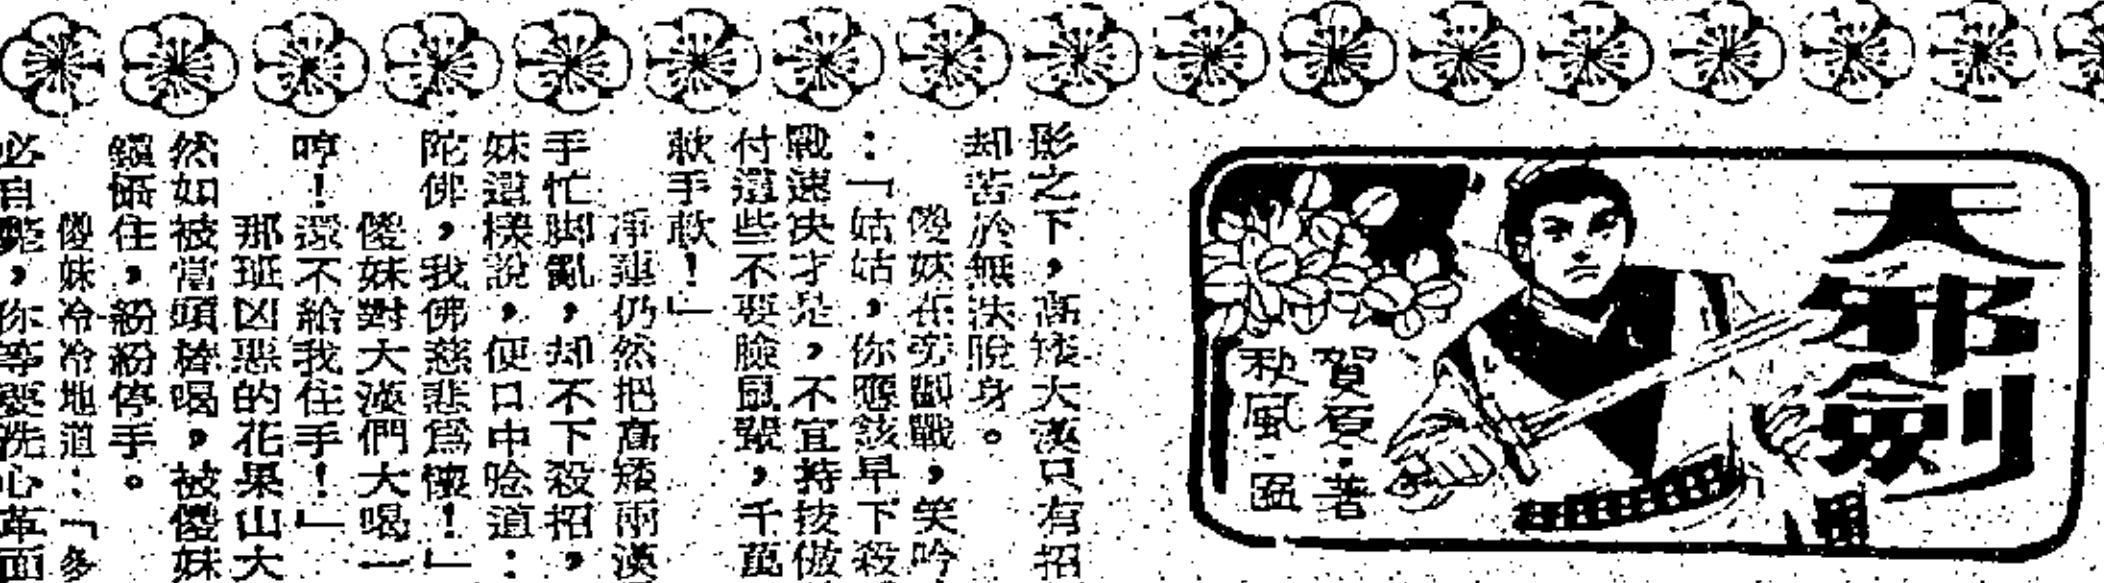 天邪劍
賀夏·著
秋風·圖
影之下，高矮大漢只有招
却苦於無法脫身。
傻妹在旁觀戰，笑吟
：「姑姑，你應該早下殺
戰速決才是，不宜持技傲
付這些不要臉鼠輩，千萬
軟手軟！」
淨蓮仍然把高矮兩漢
手忙脚亂，却不下殺招，
妹這樣說，便口中唸道：
陀佛，我佛慈悲爲懷！」
傻妹對大漢們大喝一
哼！還不給我住手！」
那班凶惡的花果山大
然如被當頭棒喝，被傻妹
懾住，紛紛停手。
傻妹冷冷地道：「多
必自斃，你等要洗心革面